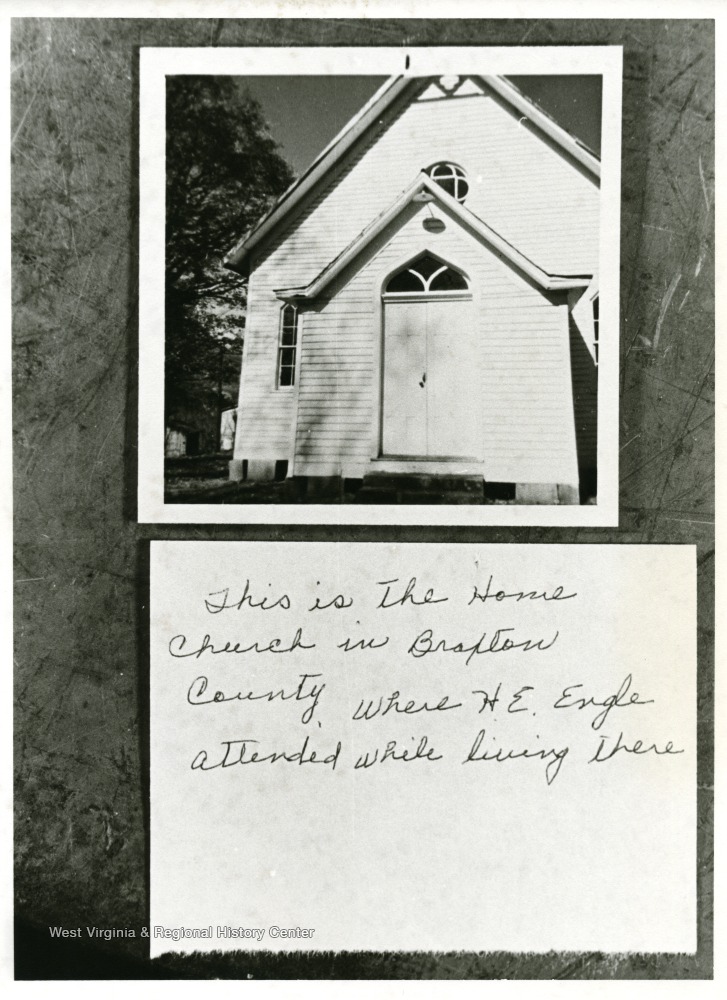 This is the Home
Church in Braxton
County, where H.E. Engle
attended while living there
West Virginia & Regional History Center